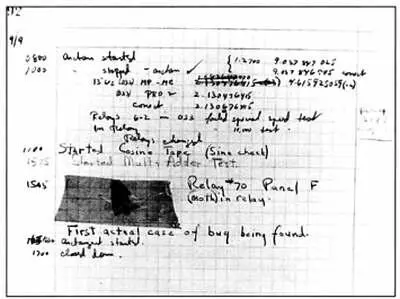 92
9/9
0800 Antan started
1000 " stopped - antan ✓ { 1.2700 9.037 847 025
9.037 846 995 correct
13"uc (032) MP - MC 4.615925059(-2)
(033) PRO. 2 2.130476415
correct 2.130676415
Relays 6-2 in 033 failed special speed test
in relay " test.
Relays changed
1100 Started Cosine Tape (Sine check)
1525 Started Mult+ Adder Test.
1545 Relay #70 Panel F
(moth) in relay.
First actual case of bug being found.
antangent started.
1700 closed down.